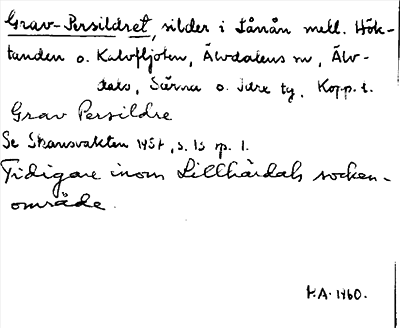 Grav-Persildret, silder i Tånån mell. Hök-
tanden o. Kalvfljoten, Älvdalens sn, Älv-
dals, Särna o. Idre tg, Kopp. l.
Grav Persildre
Se Skansvakten 1951, s. 15 sp. 1.
Tidigare inom Lillhärdals socken-
område.
H.A. 1960.